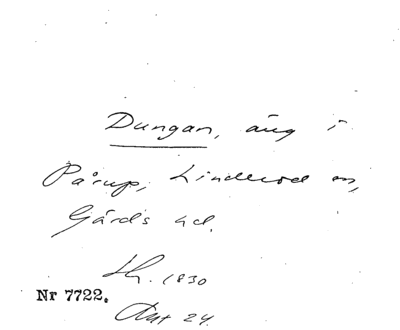 Dungan, äng i
Pårup, Linderöd sn,
Gärds hd.
Sk. 1830
Nr 7722.
Akt 24.